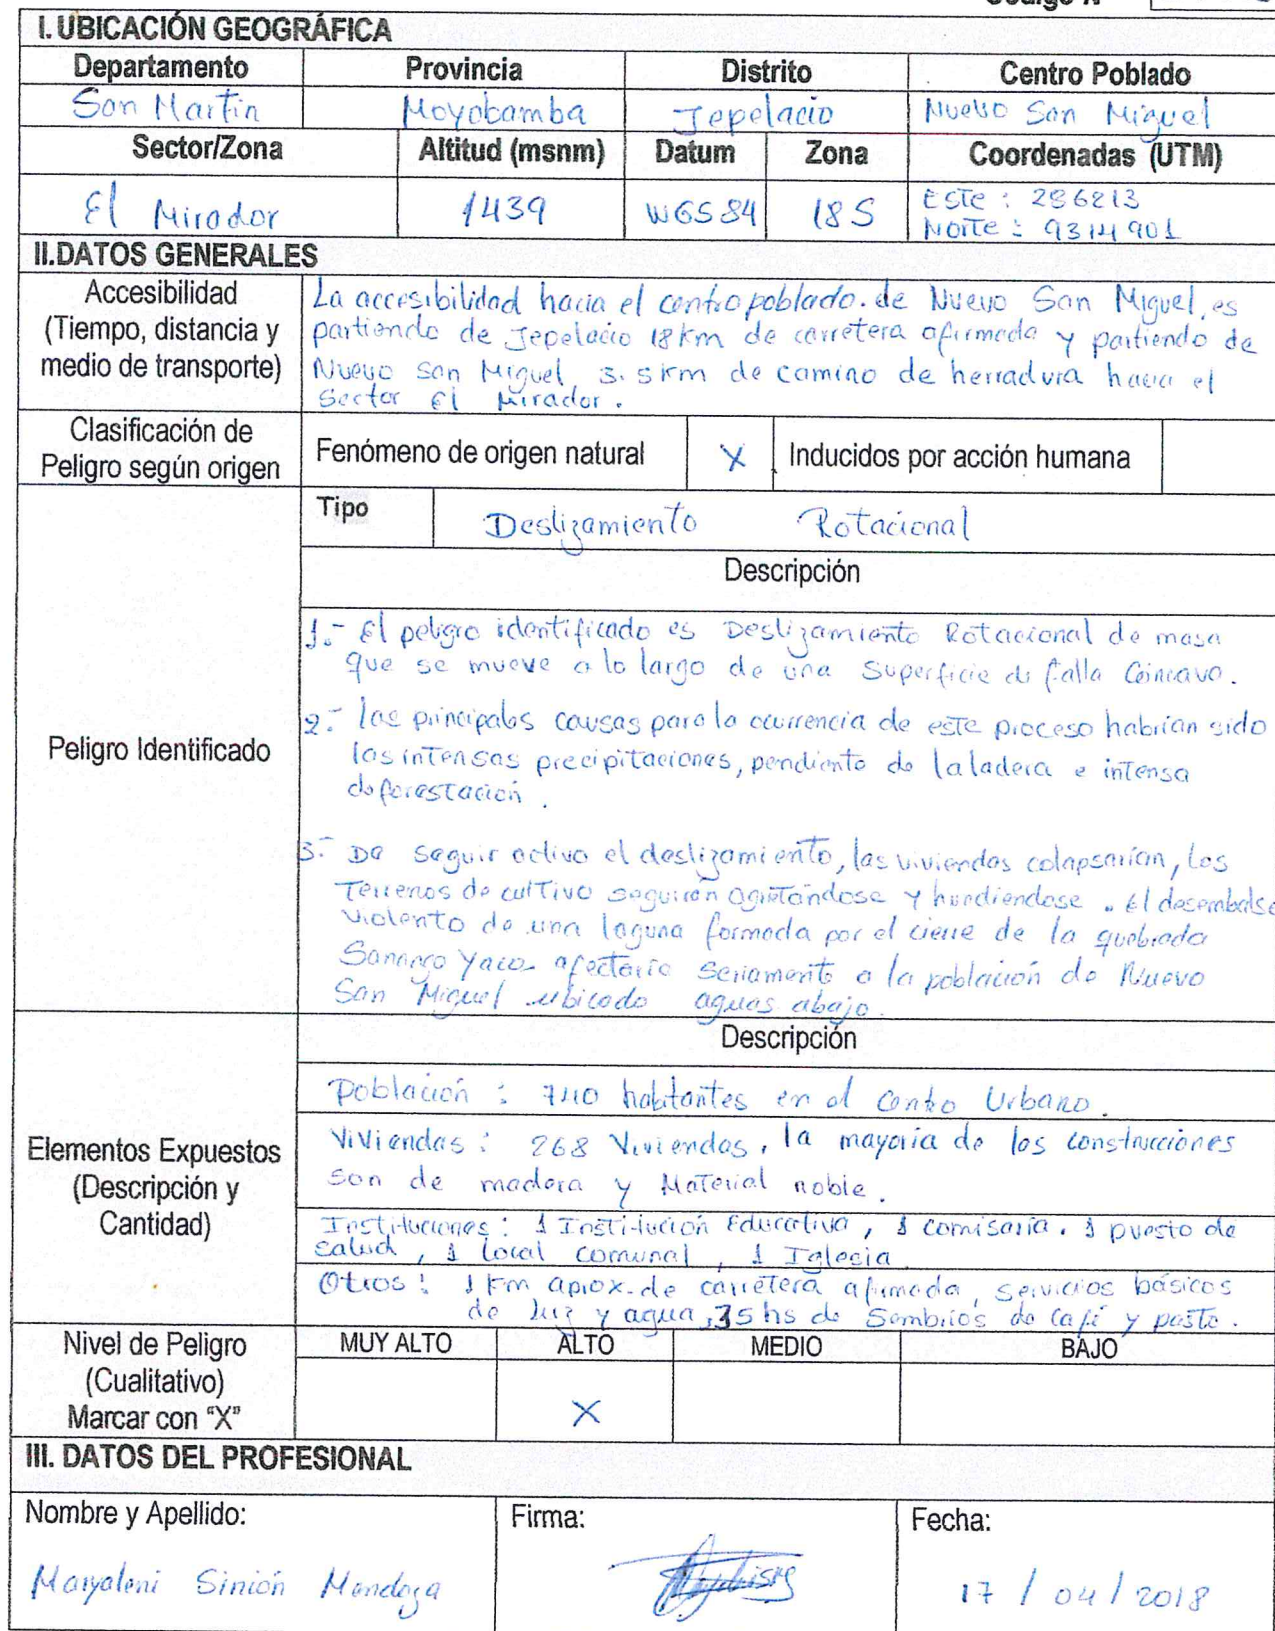 I. UBICACIÓN GEOGRÁFICA
Departamento Provincia Distrito Centro Poblado
San Martin Moyobamba Jepelacio Nuevo San Miguel
Sector/Zona Altitud (msnm) Datum Zona Coordenadas (UTM)
El Mirador 1439 WGS 84 18 S Este: 286213
Norte: 9314901
II.DATOS GENERALES
Accesibilidad
(Tiempo, distancia y
medio de transporte)
La accesibilidad hacia el centro poblado. de Nuevo San Miguel, es
partiendo de Jepelacio 18 km de carretera afirmada y partiendo de
Nuevo San Miguel, 3.5 km de camino de herradura hacia el
Sector El Mirador.
Clasificación de
Peligro según origen
Fenómeno de origen natural X Inducidos por acción humana
Peligro Identificado
Tipo Deslizamiento Rotacional
Descripción
1.- El peligro identificado es Deslizamiento Rotacional de masa
que se mueve a lo largo de una Superficie de falla Cóncavo.
2.- las principales causas para la ocurrencia de este proceso habrían sido
las intensas precipitaciones, pendiente de la ladera e intensa
deforestación.
3.- De seguir activo el deslizamiento, las viviendas colapsarían, los
Terrenos de cultivo seguirán agrietándose y hundiendose. El desembalse
violento de una laguna formada por el cierre de la quebrada
Yaco afectaría seriamente a la población de Nuevo
San Miguel ubicado aguas abajo.
Elementos Expuestos
(Descripción y
Cantidad)
Descripción
Población : habitantes en el Centro Urbano.
Viviendas : 268 Viviendas, la mayoría de los construcciones
son de madera y Material noble.
Instituciones : 1 Institución Educativa, 1 comisaria. 1 puesto de
salud, 1 local comunal, 1 Iglesia
Otros : 1 km aprox. de carretera afirmada, servicios básicos
de luz y agua, 35 hs de Sembrios de Café y pasto.
Nivel de Peligro
(Cualitativo)
Marcar con "X"
MUY ALTO ALTO MEDIO BAJO
X
III. DATOS DEL PROFESIONAL
Nombre y Apellido: Firma: Fecha:
Maryoleni Sinión Mendoza 17 / 04 / 2018